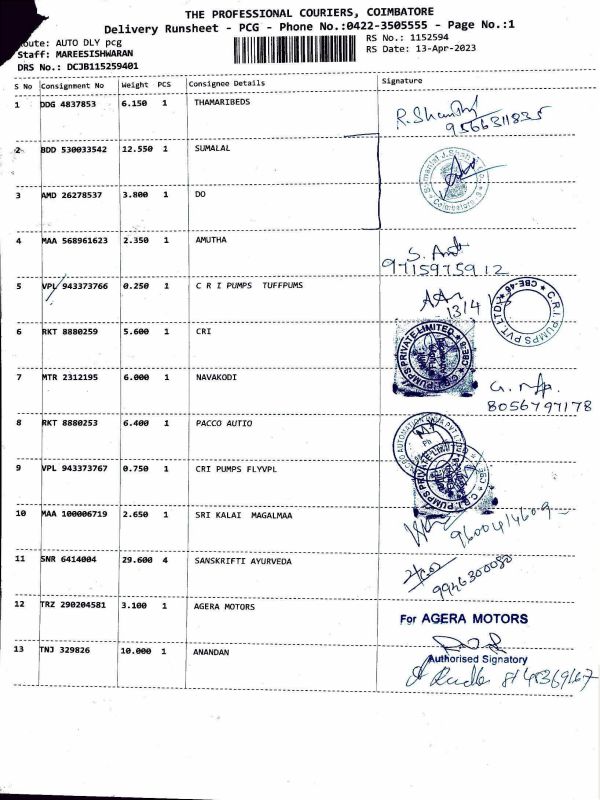 THE PROFESSIONAL COURIERS, COIMBATORE
Delivery Runsheet - PCG - Phone No.:0422-3505555 - Page No.:1
oute: AUTO DLY pcg
RS No.: 1152594
Staff: MAREESISHWARAN
RS Date: 13-Apr-2023
DRS No.: DCJB115259401
S No Consignment No Weight PCS Consignee Details Signature
1 DDG 4837853 6.150 1 THAMARIBEDS
9566311835
2 BDD 530033542 12.550 1 SUMALAL
Coimbatore
3 AMD 26278537 3.800 1 DO
4 MAA 568961623 2.350 1 AMUTHA
9715975912
5 VPL 943373766 0.250 1 C R I PUMPS TUFFPUMS
C.R.I. PUMPS PVT LTD CBE-46
6 RKT 8880259 5.600 1 CRI
C.R.I. PUMPS PRIVATE LIMITED
7 MTR 2312195 6.000 1 NAVAKODI
8056797178
8 RKT 8880253 6.400 1 PACCO AUTIO
9 VPL 943373767 0.750 1 CRI PUMPS FLYVPL
C.R.I. PUMPS PRIVATE LIMITED
10 MAA 100006719 2.650 1 SRI KALAI MAGALMAA
9600414609
11 SNR 6414004 29.600 4 SANSKRIFTI AYURVEDA
9946300080
12 TRZ 290204581 3.100 1 AGERA MOTORS
For AGERA MOTORS
13 TNJ 329826 10.000 1 ANANDAN
Authorised Signatory